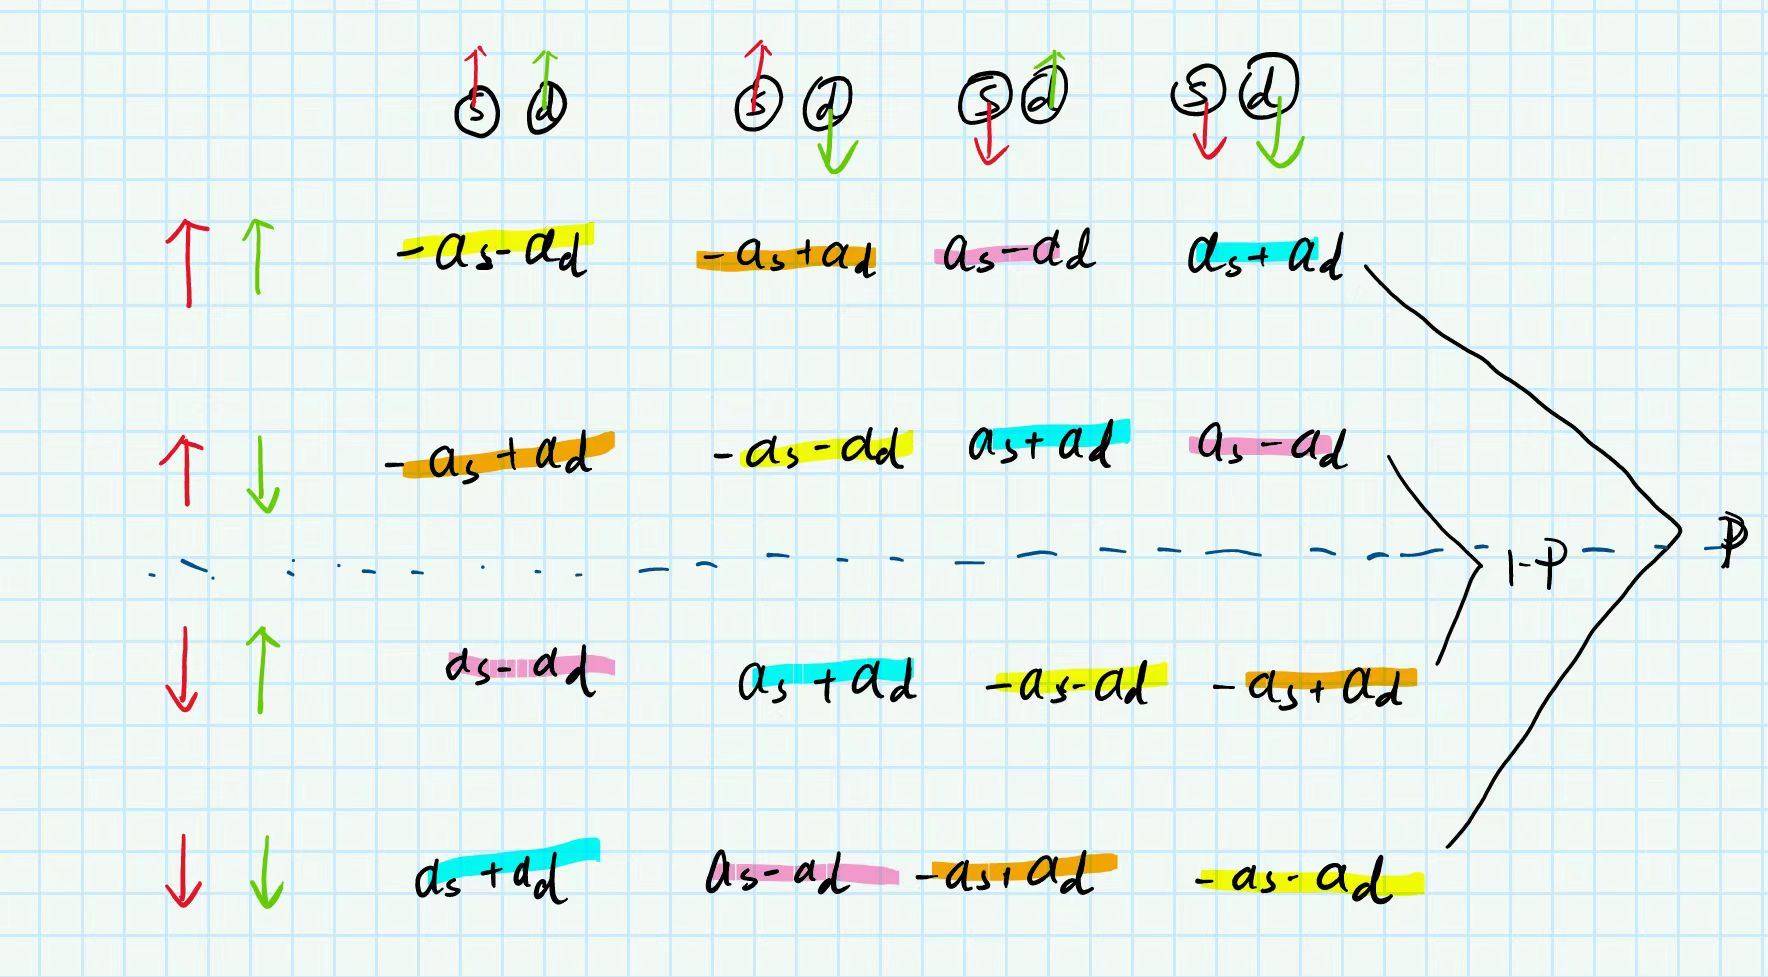 s d s d s d s d
-as-ad -as+ad as-ad as+ad
-as+ad -as-ad as+ad as-ad
1-P P
as-ad as+ad -as-ad -as+ad
as+ad as-ad -as+ad -as-ad